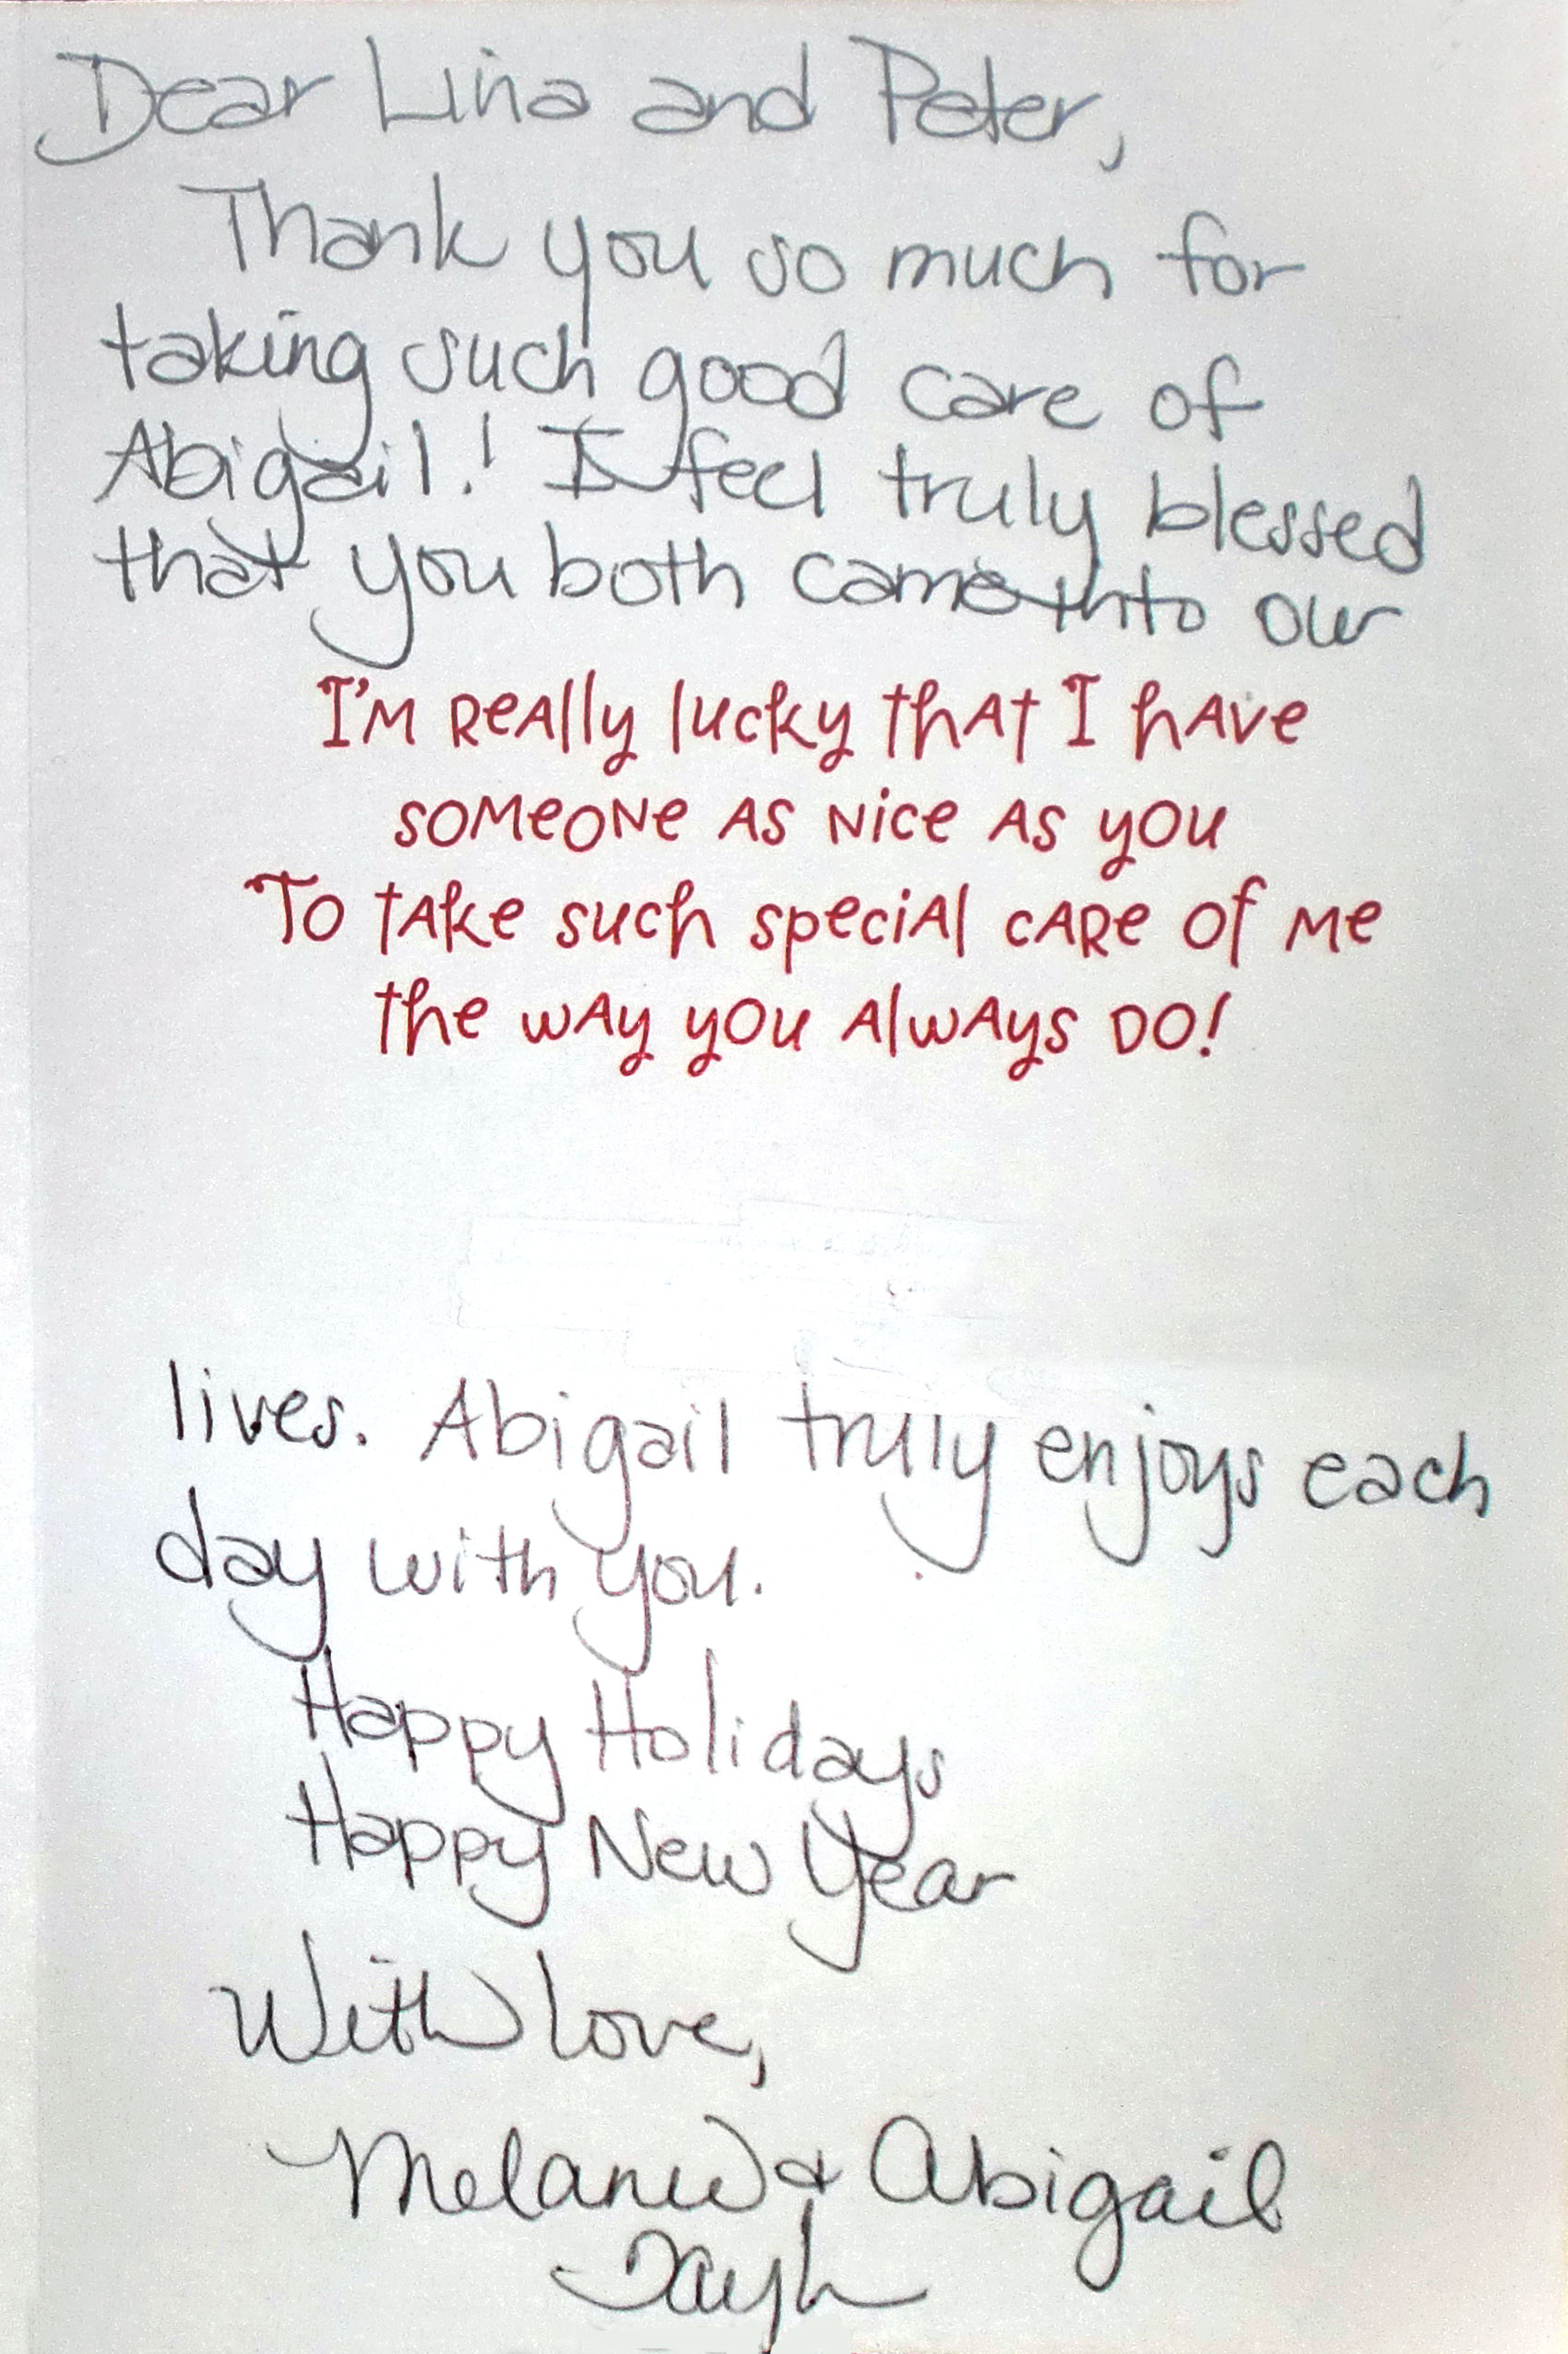 Dear Lina and Peter,
Thank you so much for
taking such good care of
Abigail! I feel truly blessed
that you both came into our
I'm really lucky that I have
someone as nice as you
To take such special care of me
the way you always do!
lives. Abigail truly enjoys each
day with you.
Happy Holidays
Happy New Year
With love,
Melanie & Abigail